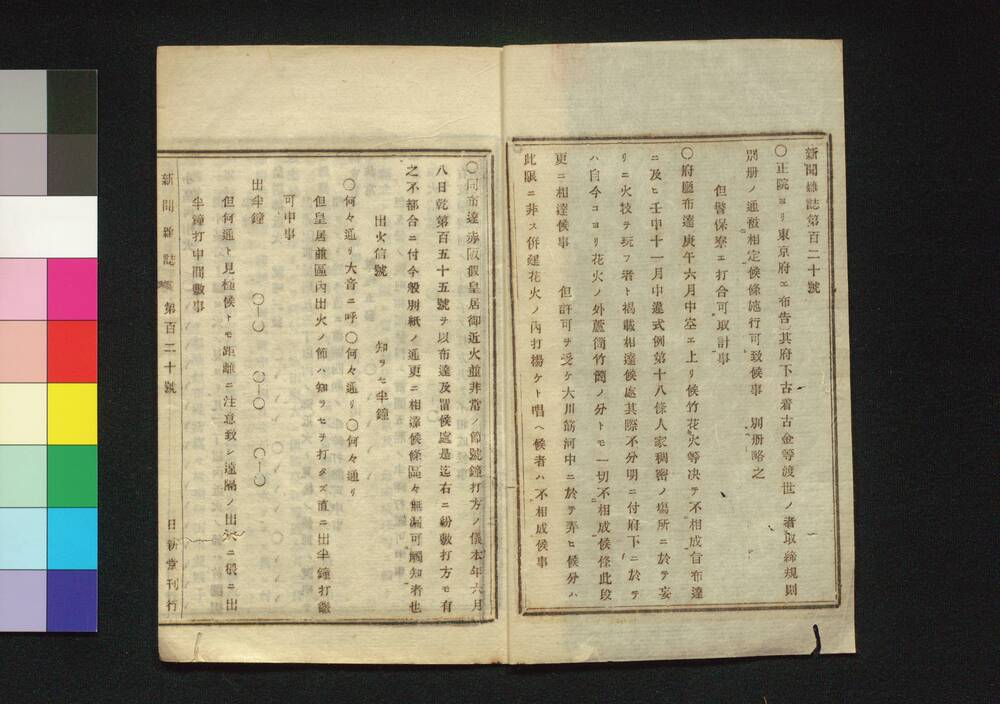 新聞雜誌第百二十號
〇正院ヨリ東京府エ布告其府下古着古金等渡世ノ者取締規則
別册ノ通被相定候條施行可致候事　別册略之
但警保寮エ打合可取計事
〇府廳布達庚午六月中空エ上リ候竹花火等決テ不相成旨布達
ニ及ヒ壬申十一月中違式例第十八條人家稠密ノ場所ニ於テ妄
リニ火技ヲ玩フ者ト揭載相達候處其際不分明ニ付府下ニ於テ
ハ自今コヨリ花火ノ外蘆筒竹筒ノ分トモ一切不相成候條此段
更ニ相達候事　但許可ヲ受ケ大川筋河中ニ於テ弄ヒ候分ハ
此限ニ非ス併建花火ノ內打揚ケト唱ヘ候者ハ不相成候事
〇同布達赤阪假皇居御近火並非常ノ節號鐘打方ノ儀本年六月
八日乾第百五十五號ヲ以布達及置候處是迄右ニ紛敷打方モ有
之不都合ニ付今般別紙ノ通更ニ相達候條區々無漏可觸知者也
出火信號　知ラセ半鐘
〇何々通リ大音ニ呼〇何々通リ〇何々通リ
但皇居並區內出火ノ節ハ知ラセヲ打タズ直ニ出半鐘打繼
可申事
出半鐘　〇-〇　〇-〇　〇-〇
但何通ト見極候トモ距離ニ注意致シ遠隔ノ出火ニ猥ニ出
半鐘打申間敷事
新聞雜誌　第百二十號　日新堂刊行